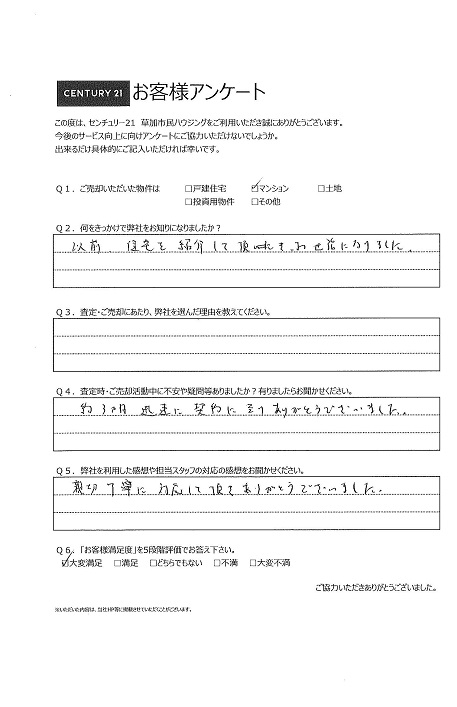 CENTURY 21 お客様アンケート
この度は、センチュリー21 草加市民ハウジングをご利用いただき誠にありがとうございます。
今後のサービス向上に向けアンケートにご協力いただけないでしょうか。
出来るだけ具体的にご記入いただければ幸いです。
Q1. ご売却いただいた物件は □戸建住宅 ☑マンション □土地
□投資用物件 □その他
Q2. 何をきっかけで弊社をお知りになりましたか?
以前、住宅を紹介して頂いたき、お世話になりました。
Q3. 査定・ご売却にあたり、弊社を選んだ理由を教えてください。
Q4. 査定時・ご売却活動中に不安や疑問等ありましたか?有りましたらお聞かせください。
約3ヶ月 迅速に契約に至りありがとうございました。
Q5. 弊社を利用した感想や担当スタッフの対応の感想をお聞かせください。
親切丁寧に対応して頂きありがとうございました。
Q6.「お客様満足度」を5段階評価でお答え下さい。
☑大変満足 □満足 □どちらでもない □不満 □大変不満
ご協力いただきありがとうございました。
※いただいた内容は、当社HP等に掲載させていただくことがございます。